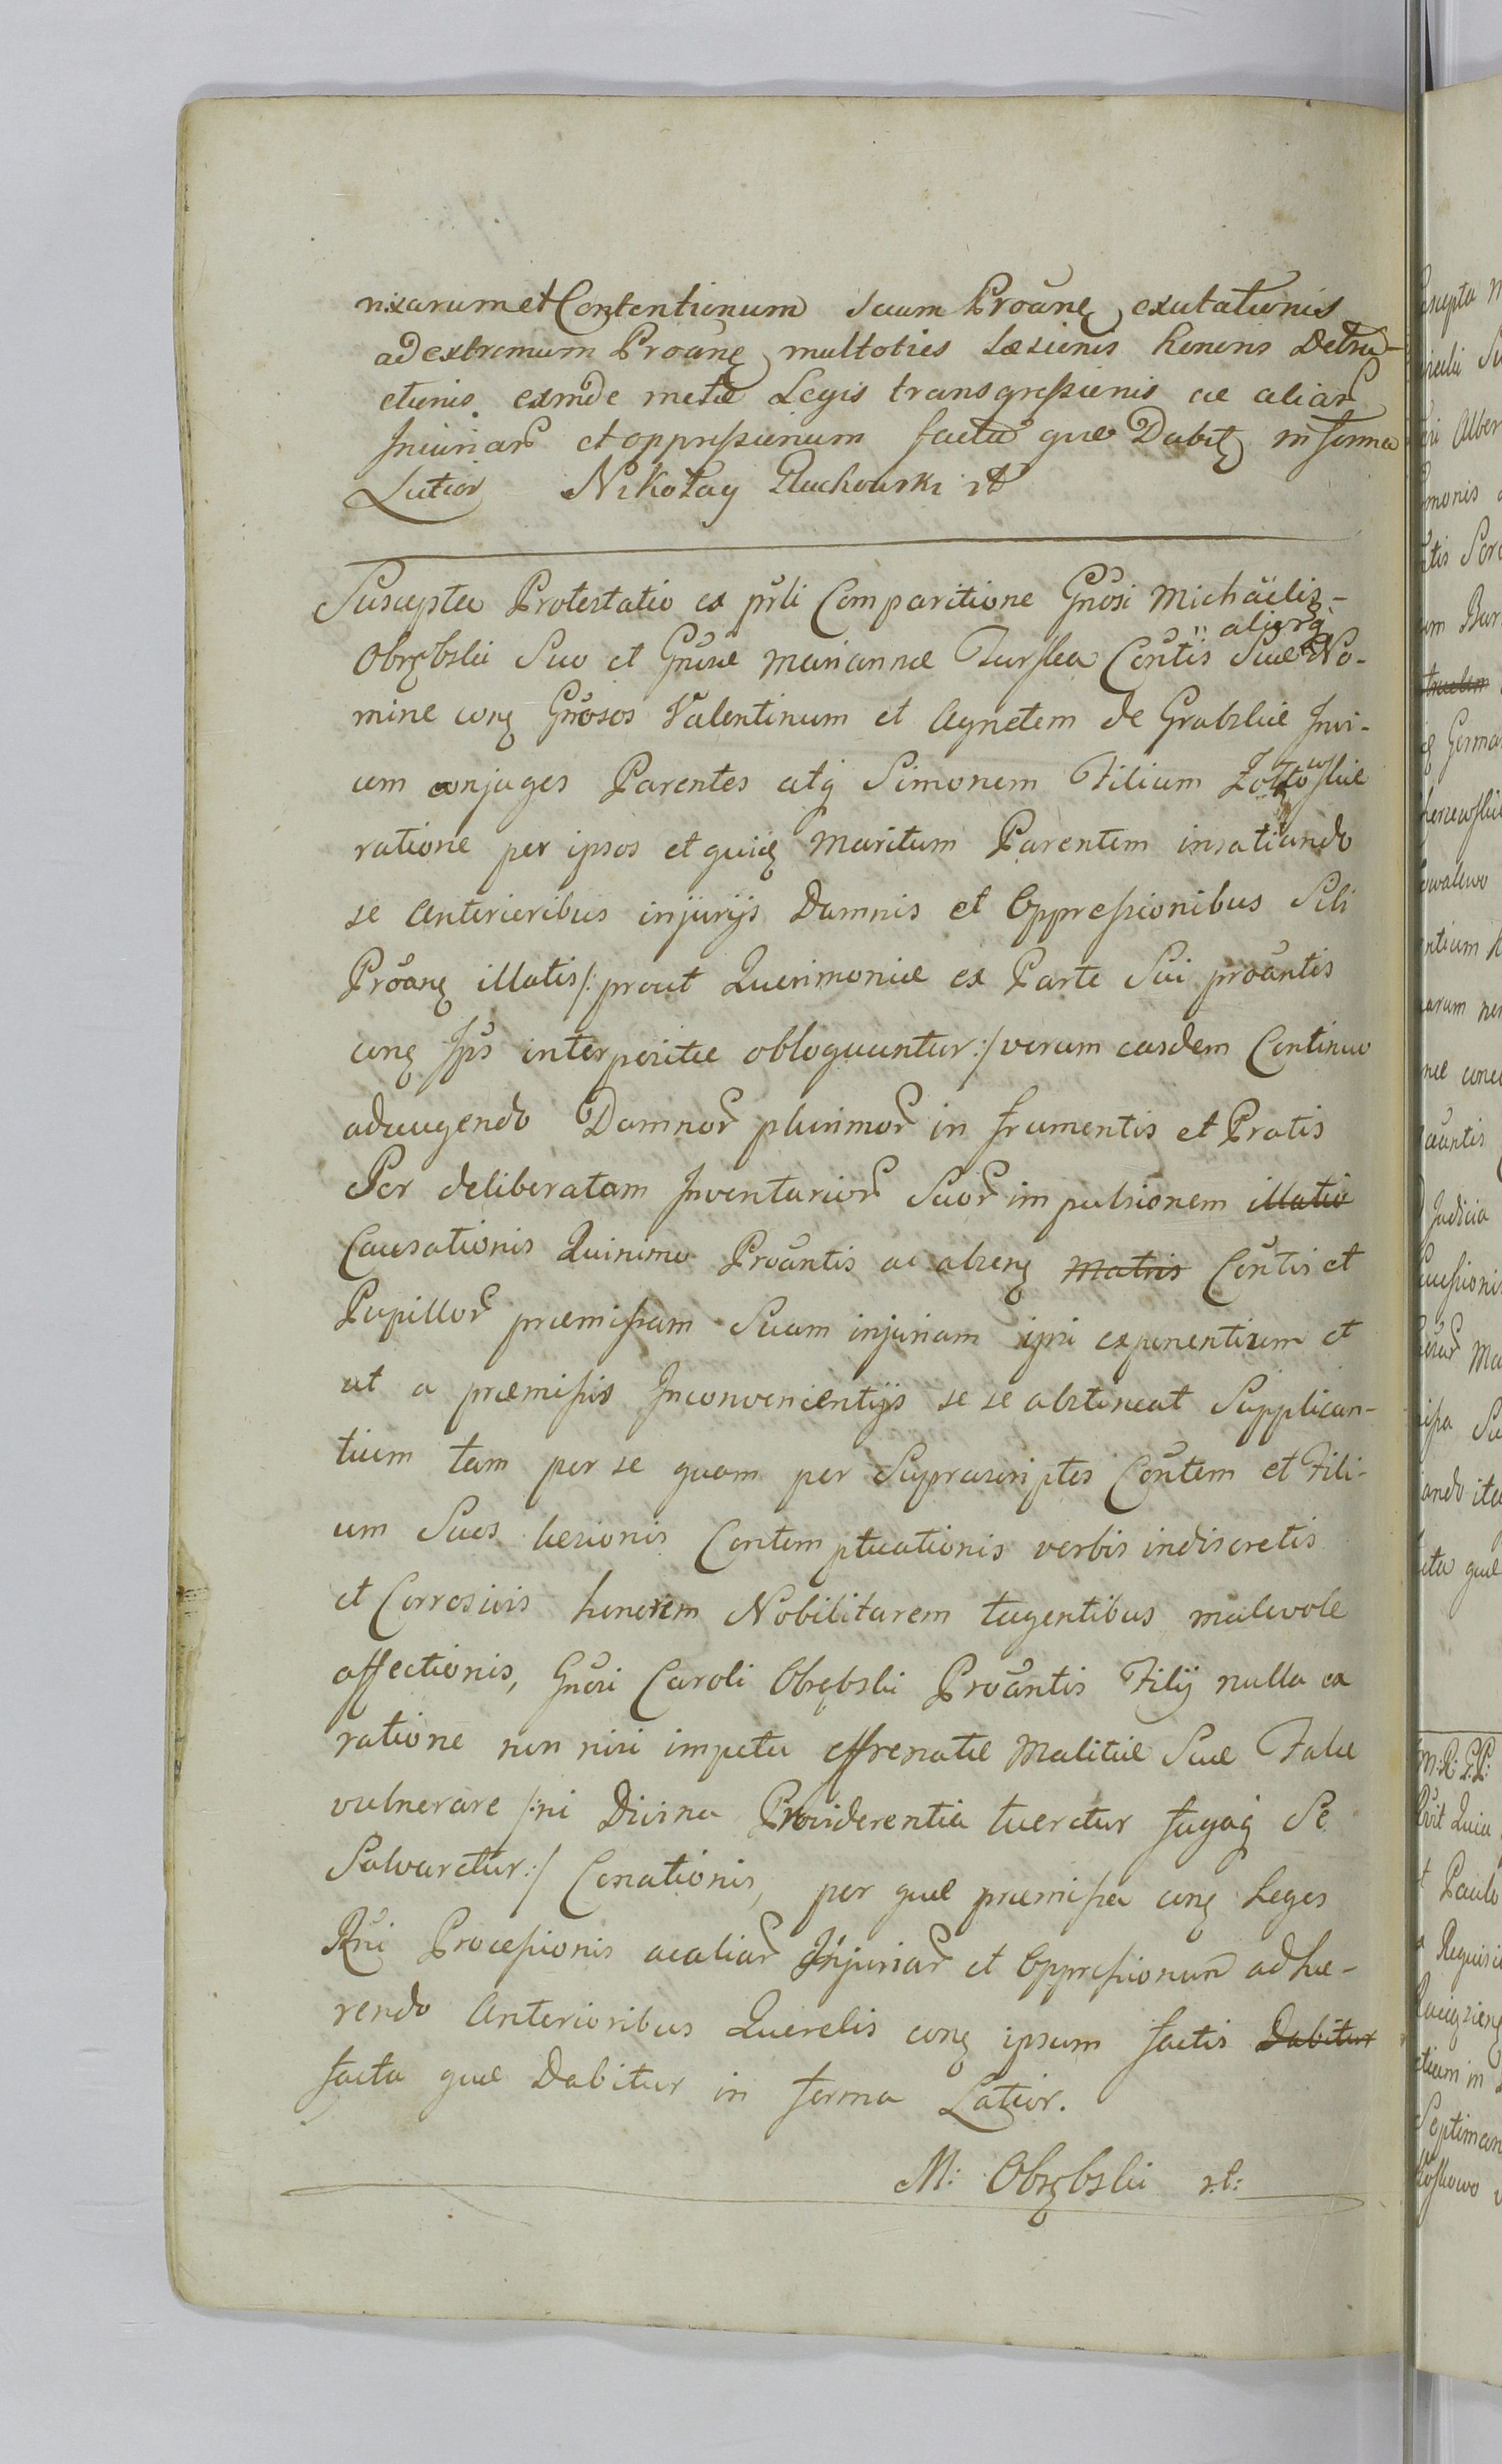 rixarum et Contentionum suam Proane excitationis
ad extremum Proane multoties Læsionis honoris Detra-
ctionis exinde metæ Legis transgressionis ac aliar
Iniuriar et oppressionum facta quæ Dabit in forma
Latior Nikołay Głuchowski
Suscepta Protestatio ex prli Comparitione Gnosi Michäelis
Obrębski Suo et Gnosæ Mariannæ Turska Contis Suæ aliorq No-
mine conq Gnosos Valentinum et Agnetem de Grabskie Invi-
cem conjuges Parentes atq Simonem Filium
ratione per ipsos et quiq Maritum Parentem insatiando
se Anterioribus injurijs Damnis et Oppressionibus Sibi
Proanq illatis/: prout Querimoniæ ex Parte Sui proantis
conq Ips interpositæ obloquuntur:/ verum easdem Continuo
adaugendo Damnor plurimor in frumentis et Pratis
Per deliberatam Inventarior Suor impulsionem illatio
Causationis Quinimo Proantis ac absenq Matris Contis et
Pupillor præmissam Suam injuriam ipsi exponentium et
ut a præmissis Inconvenientijs se se abstineat Supplican-
tium tam per se quam per Suprascriptos Contem et Fili-
um Suos læsionis Contemptuationis verbis indiscretis
et Corrosivis honorem Nobilitarem tagentibus malevole
affectionis, Gnosi Caroli Obrębski Proantis Filij nulla ex
ratione non nisi impetu effrenatæ Malitiæ Suæ Falce
vulnerare /:ni Divina Providerentia tueretur fugaq Se
Salvaretur:/ Conationis, per quæ præmissa conq Leges
Rni Processionis ac aliar Injuriar et Oppressionum adhæ-
rendo Anterioribus Querelis conq ipsum factis Dabitur
facta quæ Dabitur in forma Latior.
M: Obrębski